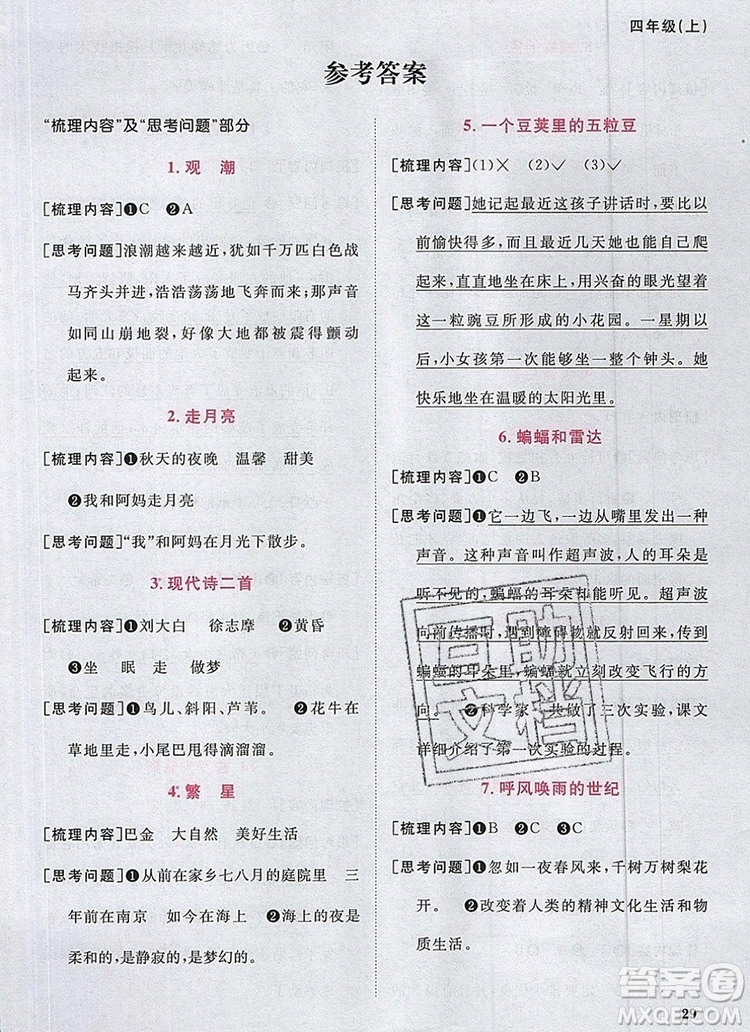 四年级(上)
参考答案
“梳理内容”及“思考问题”部分
1. 观 潮
[梳理内容]❶C ❷A
[思考问题]浪潮越来越近，犹如千万匹白色战
马齐头并进，浩浩荡荡地飞奔而来；那声音
如同山崩地裂，好像大地都被震得颤动
起来。
2. 走月亮
[梳理内容]❶秋天的夜晚 温馨 甜美
❷我和阿妈走月亮
[思考问题]“我”和阿妈在月光下散步。
3. 现代诗二首
[梳理内容]❶刘大白 徐志摩 ❷黄昏
❸坐 眠 走 做梦
[思考问题]❶鸟儿、斜阳、芦苇。 ❷花牛在
草地里走，小尾巴甩得滴溜溜。
4. 繁 星
[梳理内容]巴金 大自然 美好生活
[思考问题]❶从前在家乡七八月的庭院里 三
年前在南京 如今在海上 ❷海上的夜是
柔和的，是静寂的，是梦幻的。
5. 一个豆荚里的五粒豆
[梳理内容](1)✕ (2)✓ (3)✓
[思考问题]她记起最近这孩子讲话时，要比以
前愉快得多，而且最近几天她也能自己爬
起来，直直地坐在床上，用兴奋的眼光望着
这一粒豌豆所形成的小花园。一星期以
后，小女孩第一次能够坐一整个钟头。她
快乐地坐在温暖的太阳光里。
6. 蝙蝠和雷达
[梳理内容]❶C ❷B
[思考问题]❶它一边飞，一边从嘴里发出一种
声音。这种声音叫作超声波，人的耳朵是
听不见的，蝙蝠的耳朵却能听见。超声波
向前传播时，遇到障碍物就反射回来，传到
蝙蝠的耳朵里，蝙蝠就立刻改变飞行的方
向。 ❷科学家一共做了三次实验，课文
详细介绍了第一次实验的过程。
7. 呼风唤雨的世纪
[梳理内容]❶B ❷C ❸B
[思考问题]❶忽如一夜春风来，千树万树梨花
开。 ❷改变着人类的精神文化生活和物
质生活。
互助
文档
答案圈
MXQE.COM
29